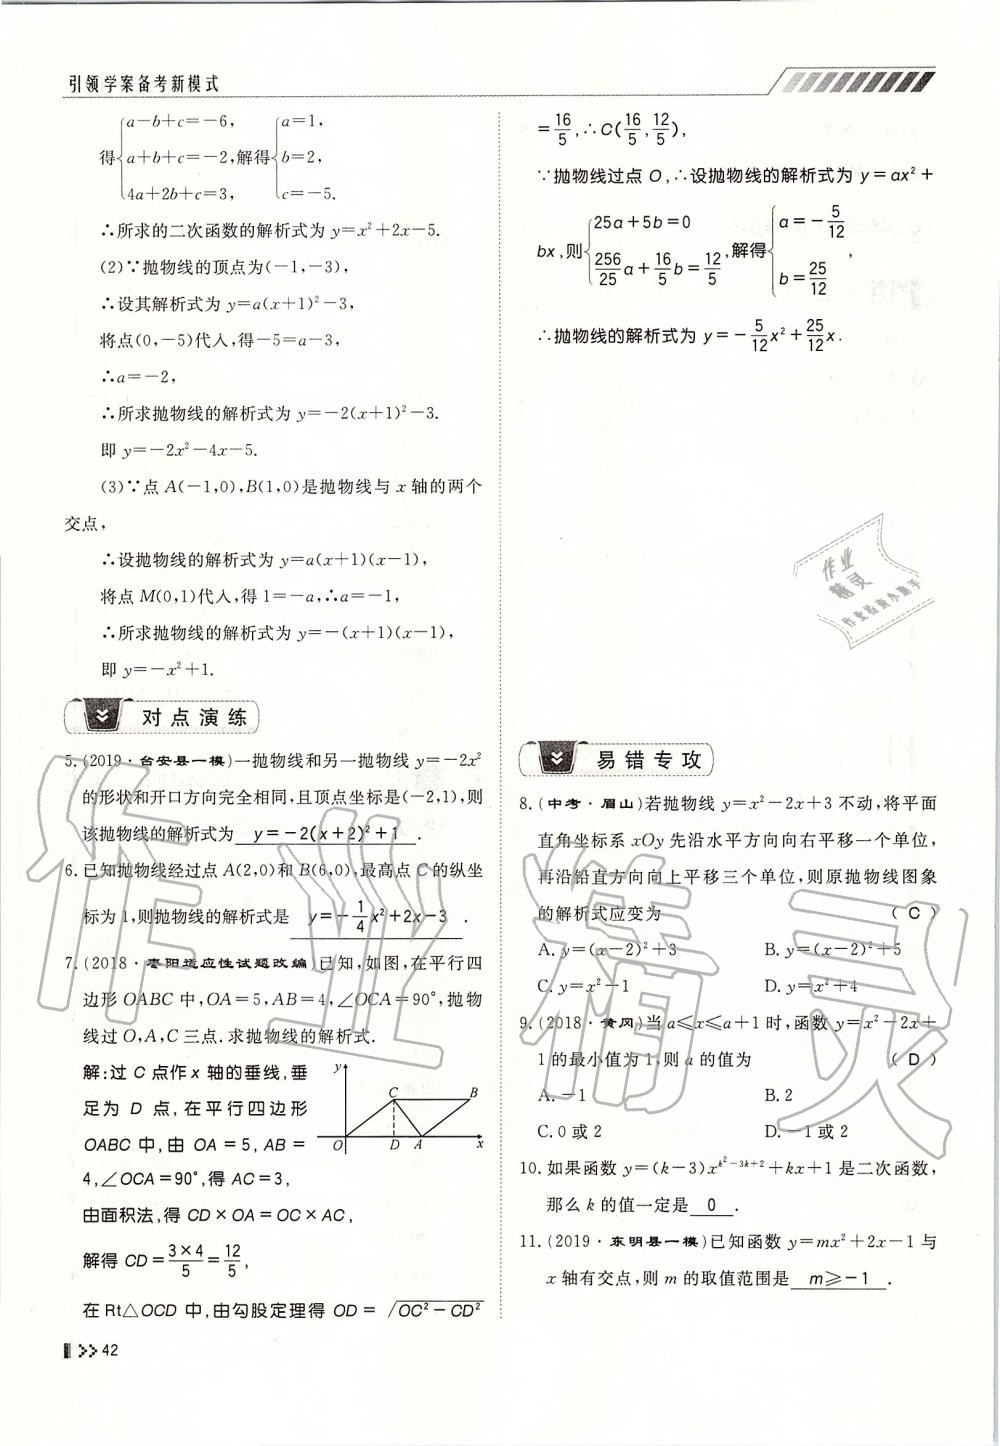 引领学案备考新模式
得{a-b+c=-6, a+b+c=-2, 4a+2b+c=3, 解得{a=1, b=2, c=-5.
∴所求的二次函数的解析式为 y=x²+2x-5.
(2)∵抛物线的顶点为(-1,-3),
∴设其解析式为 y=a(x+1)²-3,
将点(0,-5)代入,得-5=a-3,
∴a=-2,
∴所求抛物线的解析式为 y=-2(x+1)²-3.
即 y=-2x²-4x-5.
(3)∵点 A(-1,0),B(1,0)是抛物线与 x 轴的两个
交点,
∴设抛物线的解析式为 y=a(x+1)(x-1),
将点 M(0,1)代入,得 1=-a,∴a=-1,
∴所求抛物线的解析式为 y=-(x+1)(x-1),
即 y=-x²+1.
对点演练
5. (2019·台安县一模)一抛物线和另一抛物线 y=-2x²
的形状和开口方向完全相同,且顶点坐标是(-2,1),则
该抛物线的解析式为 y=-2(x+2)²+1 .
6. 已知抛物线经过点 A(2,0)和 B(6,0),最高点 C 的纵坐
标为 1,则抛物线的解析式是 y=-1/4x²+2x-3 .
7. (2018·枣阳适应性试题改编)已知,如图,在平行四
边形 OABC 中,OA=5,AB=4,∠OCA=90°,抛物
线过 O,A,C 三点.求抛物线的解析式.
解:过 C 点作 x 轴的垂线,垂
足为 D 点,在平行四边形
OABC 中,由 OA=5,AB=
4,∠OCA=90°,得 AC=3,
y
C
B
O
D
A
x
由面积法,得 CD×OA=OC×AC,
解得 CD=3×4/5=12/5,
在 Rt△OCD 中,由勾股定理得 OD=√OC²-CD²
42
=16/5,∴C(16/5,12/5),
∵抛物线过点 O,∴设抛物线的解析式为 y=ax²+
bx,则{25a+5b=0, 256/25a+16/5b=12/5,解得{a=-5/12, b=25/12,
∴抛物线的解析式为 y=-5/12x²+25/12x.
作业
精灵
作业检查小助手
易错专攻
8. (中考·眉山)若抛物线 y=x²-2x+3 不动,将平面
直角坐标系 xOy 先沿水平方向向右平移一个单位,
再沿铅直方向向上平移三个单位,则原抛物线图象
的解析式应变为 ( C )
A. y=(x-2)²+3 B. y=(x-2)²+5
C. y=x²-1 D. y=x²+4
9. (2018·黄冈)当 a≤x≤a+1 时,函数 y=x²-2x+
1 的最小值为 1,则 a 的值为 ( D )
A. -1 B. 2
C. 0 或 2 D. -1 或 2
10. 如果函数 y=(k-3)x^(k²-3k+2)+kx+1 是二次函数,
那么 k 的值一定是 0 .
11. (2019·东明县一模)已知函数 y=mx²+2x-1 与
x 轴有交点,则 m 的取值范围是 m≥-1 .
作业精灵